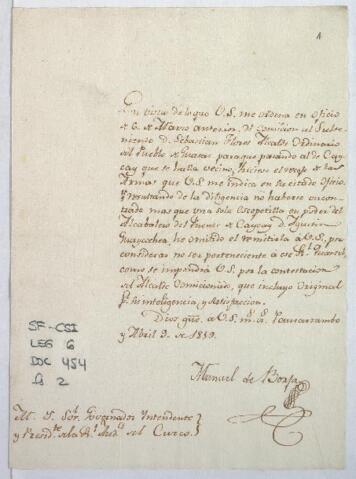 1
En vista de lo que V.S. me ordena en oficio
de 6 de Marzo anterior, di comicion al Subte-
niente D. Sebastian Flores Alcalde Ordinario
del Pueblo de Huasac para que pasando al de Cay-
cay que se halla vecino, hiciese el recojo de las
Armas que V.S. me indica en su citado Oficio.
Y resultando de la diligencia no haberse encon-
trado mas que una sola Escopetilla en poder del
Alcabalero del Puente de Caycay D. Agustin
he omitido el remitirla à V.S. por
considerar no ser perteneciente à ese Rl.
como se impondrá V.S. por la contestacion
del Alcalde Comicionado, que incluyo Original
pa. su inteligencia, y satisfaccion.
Dios gue. a V.S. ms. as. Paucartambo
y Abril 9. de 1819.
Manuel de Borja
M. Y. Sor. Governador Intendente
y Presidte. de la Rl. Auda. del Cuzco.
SF-CSI
LEG 6
DOC 454
f. 2